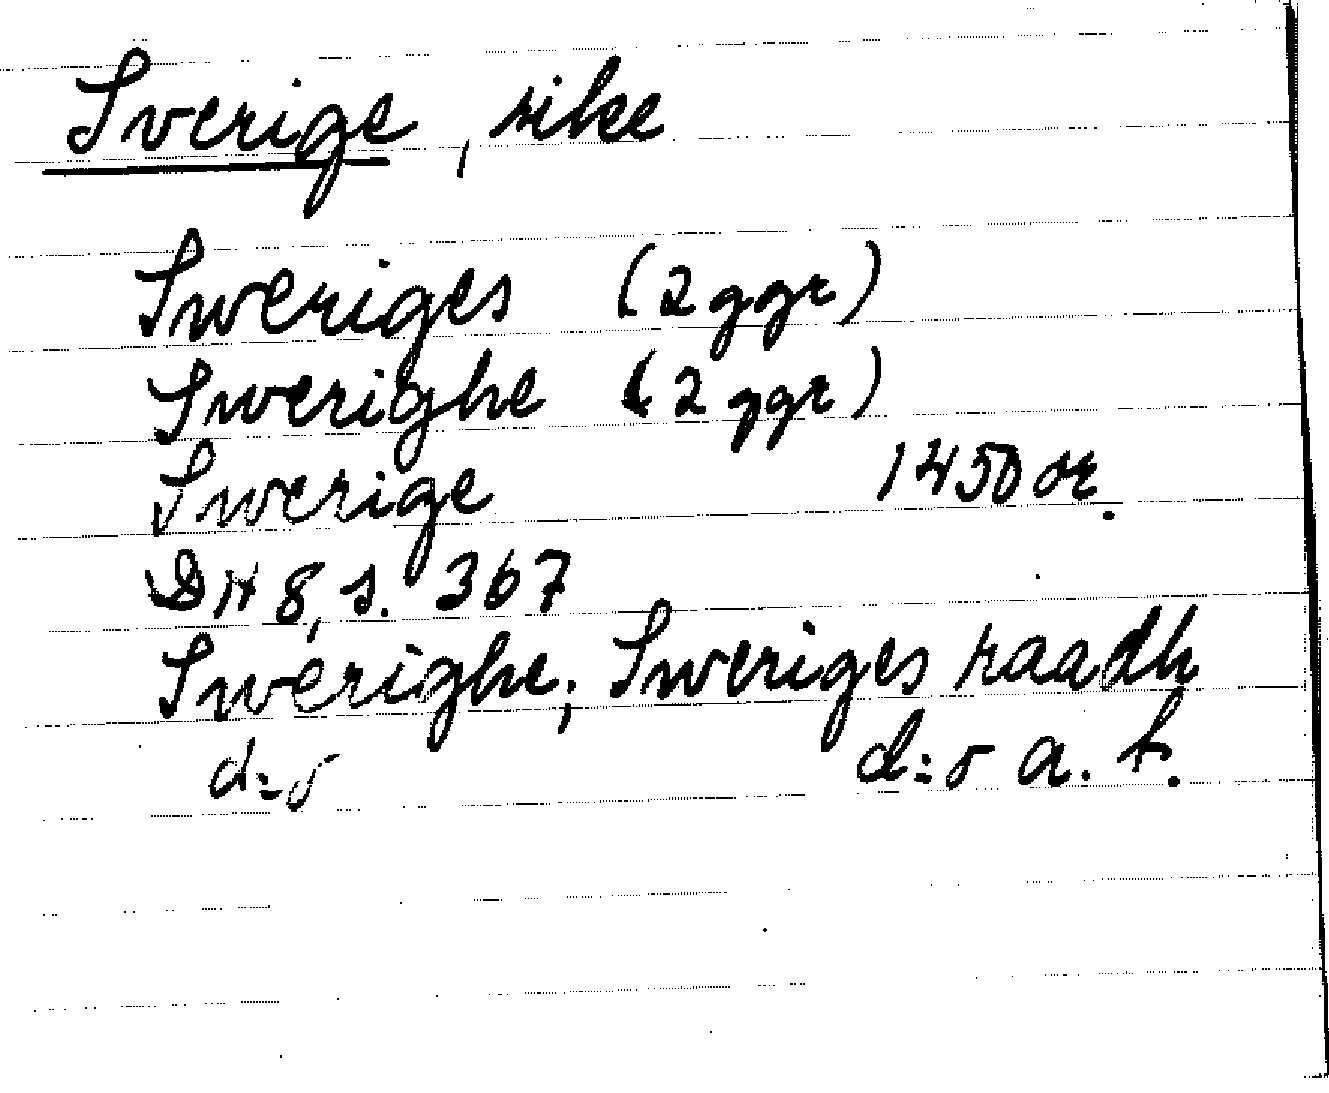 Sverige, rike
Sweriges (2 ggr)
Swerighe (2 ggr)
Swerige 1450 or.
DN 8, s. 367
Swerighe; Sweriges raadh
d:o d:o a. st.